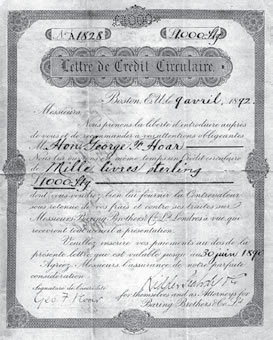 No. A1828 £1000 Stg
Lettre de Crédit Circulaire.
Boston, E.U. le 9 avril, 1892.
Messieurs
Nous prenons la liberté d'introduire auprès
de vous et de recommander à vos attentions obligeantes
M. Hon. George F. Hoar
en même tems un Crédit circulaire
de Mille livres sterling
£1000 Stg
dont vous voudrez bien lui fournir la Contrevaleur
nette de tous frais contre ses traites sur
Messieurs Baring Brothers & Co. Ld. Londres à vue qui
recevront tout accueil à présentation.
Veuillez inscrire vos payements au dos de la
présente lettre, qui est valable jusqu'au 30 juin 1893
Agréez, Messieurs, l'assurance de notre parfaite
considération.
Signature de l'accrédité
Geo F Hoar
for themselves and as Attorneys for
Baring Brothers & Co. Ld.